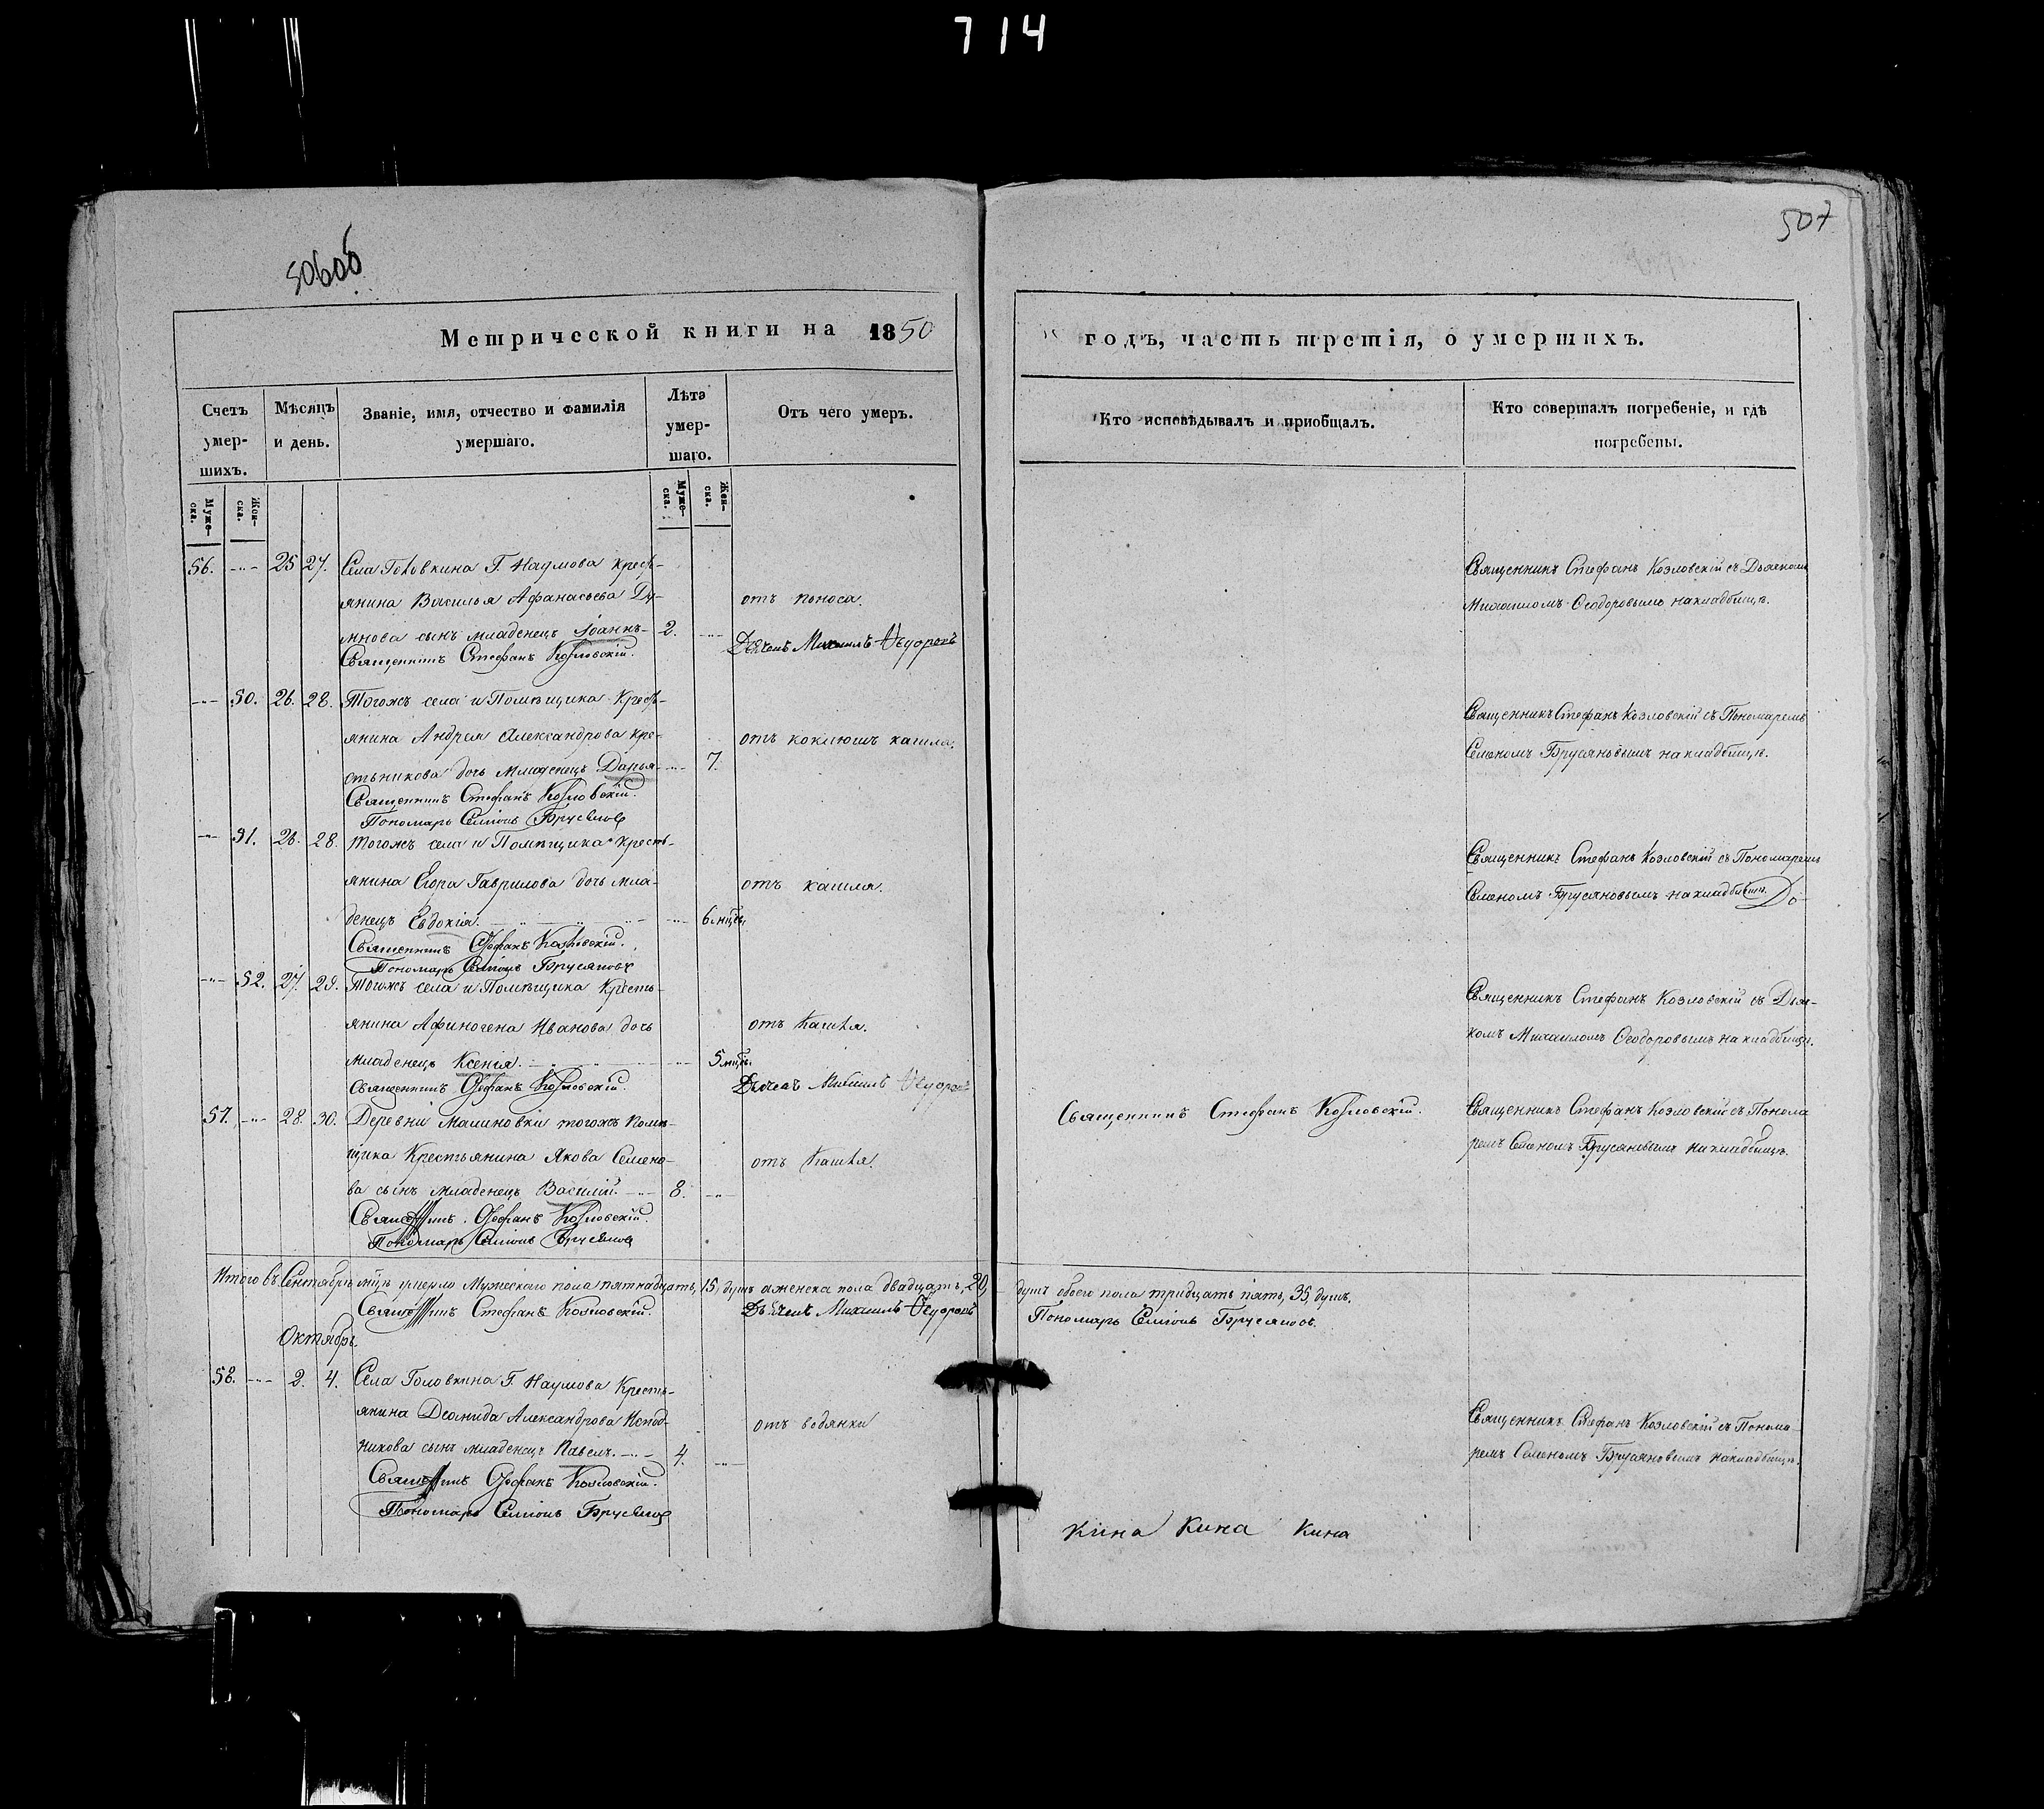 714
506об
507
Метрической книги на 1850
годъ, часть третія, о умершихъ.
Счетъ умер-шихъ.
Мѣсяцъ и день.
Званіе, имя, отчество и фамилія умершаго.
Лѣта умер-шаго.
Отъ чего умеръ.
Кто исповѣдывалъ и приобщалъ.
Кто совершалъ погребеніе, и гдѣ погребены.
Муже-ска.
Жен-ска.
Муже-ска.
Жен-ска.
56. 25 27. Села Головкина Г. Наумова Кресть-
янина Василья Афанасьева
сынъ младенецъ Іоаннъ 2.
отъ поноса.
Священникъ Стефанъ Козловскій.
Дьячекъ Михаилъ Ѳедоровъ
Священникъ Стефанъ Козловскій съ Дьячкомъ
Михаиломъ Ѳеодоровымъ на кладбищѣ.
50. 26. 28. Тогожъ села и Помѣщика Кресть-
янина Андрея Александрова Кро-
отъ коклюша кашля.
дочь младенецъ Дарья 7.
Священникъ Стефанъ Козловскій.
Пономарь Симіонъ Брусяновъ
Священникъ Стефанъ Козловскій съ Пономаремъ
Семеномъ Брусяновымъ на кладбищѣ.
51. 26. 28. Тогожъ села и Помѣщика Кресть-
янина Егора Гаврилова дочь мла-
отъ кашля.
денецъ Евдокія. 6 мцѣв.
Священникъ Стефанъ Козловскій.
Пономарь Симіонъ Брусяновъ
Священникъ Стефанъ Козловскій съ Пономаремъ
Семеномъ Брусяновымъ на кладбищѣ.
52. 27. 29. Тогожъ села и Помѣщика Кресть-
янина Афиногена Иванова дочь
отъ кашля.
младенецъ Ксенія. 5 мцѣв.
Священникъ Стефанъ Козловскій.
Дьячекъ Михаилъ Ѳедоровъ
Священникъ Стефанъ Козловскій съ Дьяч-
комъ Михаиломъ Ѳеодоровымъ на кладбищѣ.
57. 28. 30. Деревни Малиновки тогожъ Помѣ-
щика Крестьянина Якова Семено-
отъ кашля.
ва сынъ младенецъ Василій. 8.
Священникъ Стефанъ Козловскій.
Пономарь Симіонъ Брусяновъ
Священникъ Стефанъ Козловскій.
Священникъ Стефанъ Козловскій съ Понома
ремъ Семеномъ Брусяновымъ на кладбищѣ.
Итого въ Сентябрѣ мцѣ умерло Мужескаго пола пятнадцать, 15, душъ а женска пола двадцать, 20, душъ обоего пола тридцать пять, 35, душъ.
Священникъ Стефанъ Козловскій. Дьячекъ Михаилъ Ѳедоровъ Пономарь Симіонъ Брусяновъ.
Октябрь.
58. 2. 4. Села Головкина Г. Наумова Кресть-
янина Леонида Александрова
отъ водянки
сынъ младенецъ Павелъ. 4.
Священникъ Стефанъ Козловскій.
Пономарь Симіонъ Брусяновъ
Священникъ Стефанъ Козловскій съ Понома-
ремъ Семеномъ Брусяновымъ на кладбищѣ.
Кина Кина Кина